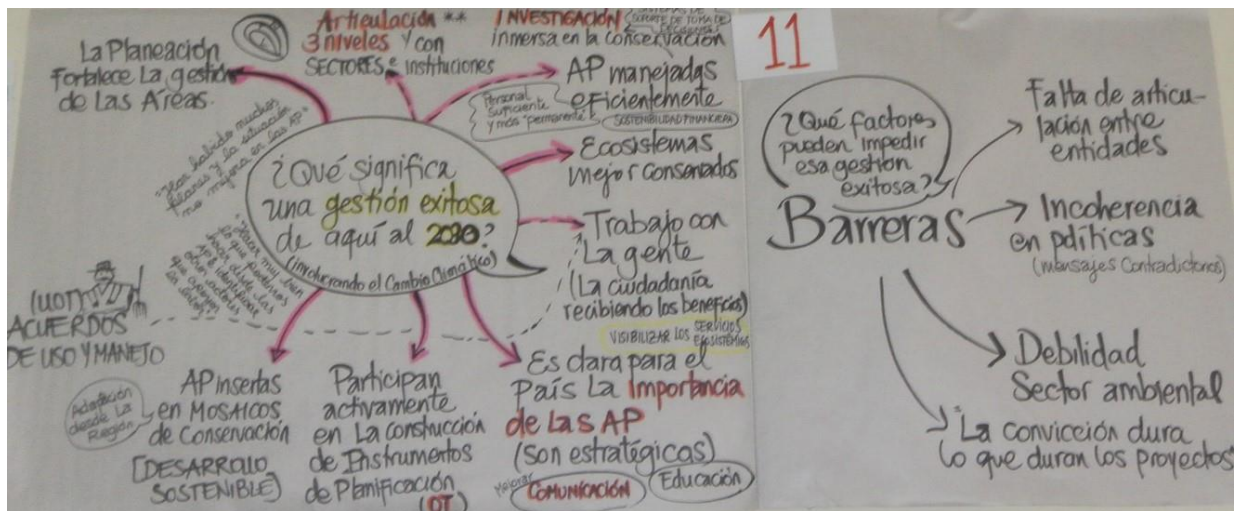 La Planeación
Fortalece La gestión
de Las Áreas.
Articulación **
3 niveles y con
SECTORES e instituciones
INVESTIGACIÓN
SOPORTE DE TOMA DE
DECISIONES
inmersa en la conservación
AP manejadas
eficientemente
Personal
Suficiente
y más "permanente"
SOSTENIBILIDAD FINANCIERA
Ecosistemas
mejor conservados
Trabajo con
La gente
(La ciudadanía
recibiendo los beneficios)
VISIBILIZAR LOS SERVICIOS
ECOSISTÉMICOS
¿Qué significa
una gestión exitosa
de aquí al 2030?
(involucrando el Cambio Climático)
"Han habido muchos
planes y la situación
no mejora en las AP"
"Hacer muy bien
lo que podemos
hacer desde las
AP e identificar
otros actores
que apoyen
(UOT)
ACUERDOS
DE USO Y MANEJO
AP insertas
en MOSAICOS
de Conservación
[DESARROLLO
SOSTENIBLE]
Adaptación
desde La
Región
Participan
activamente
en La construcción
de Instrumentos
de Planificación
(OT)
Es clara para el
País La Importancia
de Las AP
(son estratégicas)
Mejorar
COMUNICACIÓN
Educación
11
¿Qué factores
pueden impedir
esa gestión
exitosa?
Barreras
Falta de articu-
lación entre
entidades
Incoherencia
en políticas
(mensajes Contradictorios)
Debilidad
Sector ambiental
"La convicción dura
lo que duran los proyectos"